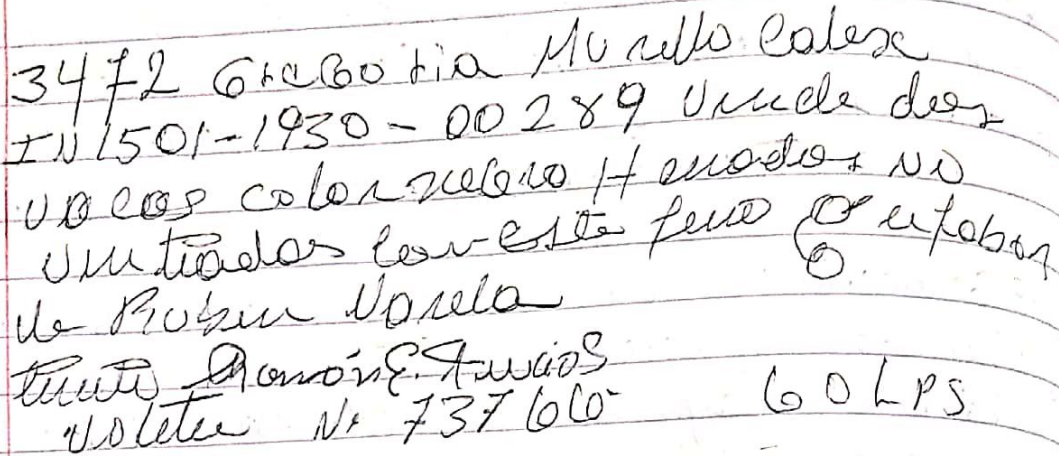 3472 Murillo Calix
IN 1501-1930-00289 Vende dos
vacas color negro Herrados No
Ventiados con este fierro a fabor
de Ruben Varela
Ramón E.
Voleta No 73766
60 LPS